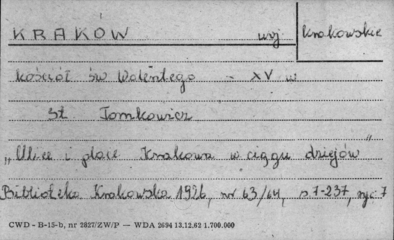 KRAKÓW woj krakowskie
kościół św Walentego - XV w
St Tomkowicz
„Ulice i place Krakowa w ciągu dziejów"
Biblioteka Krakowska 1926, nr 63/64, s 7-237, ryc 7
CWD - B-15-b, nr 2827/ZW/P — WDA 2694 13.12.62 1.700.000